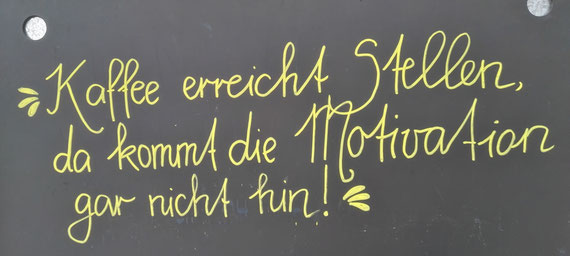 Kaffee erreicht Stellen,
da kommt die Motivation
gar nicht hin!